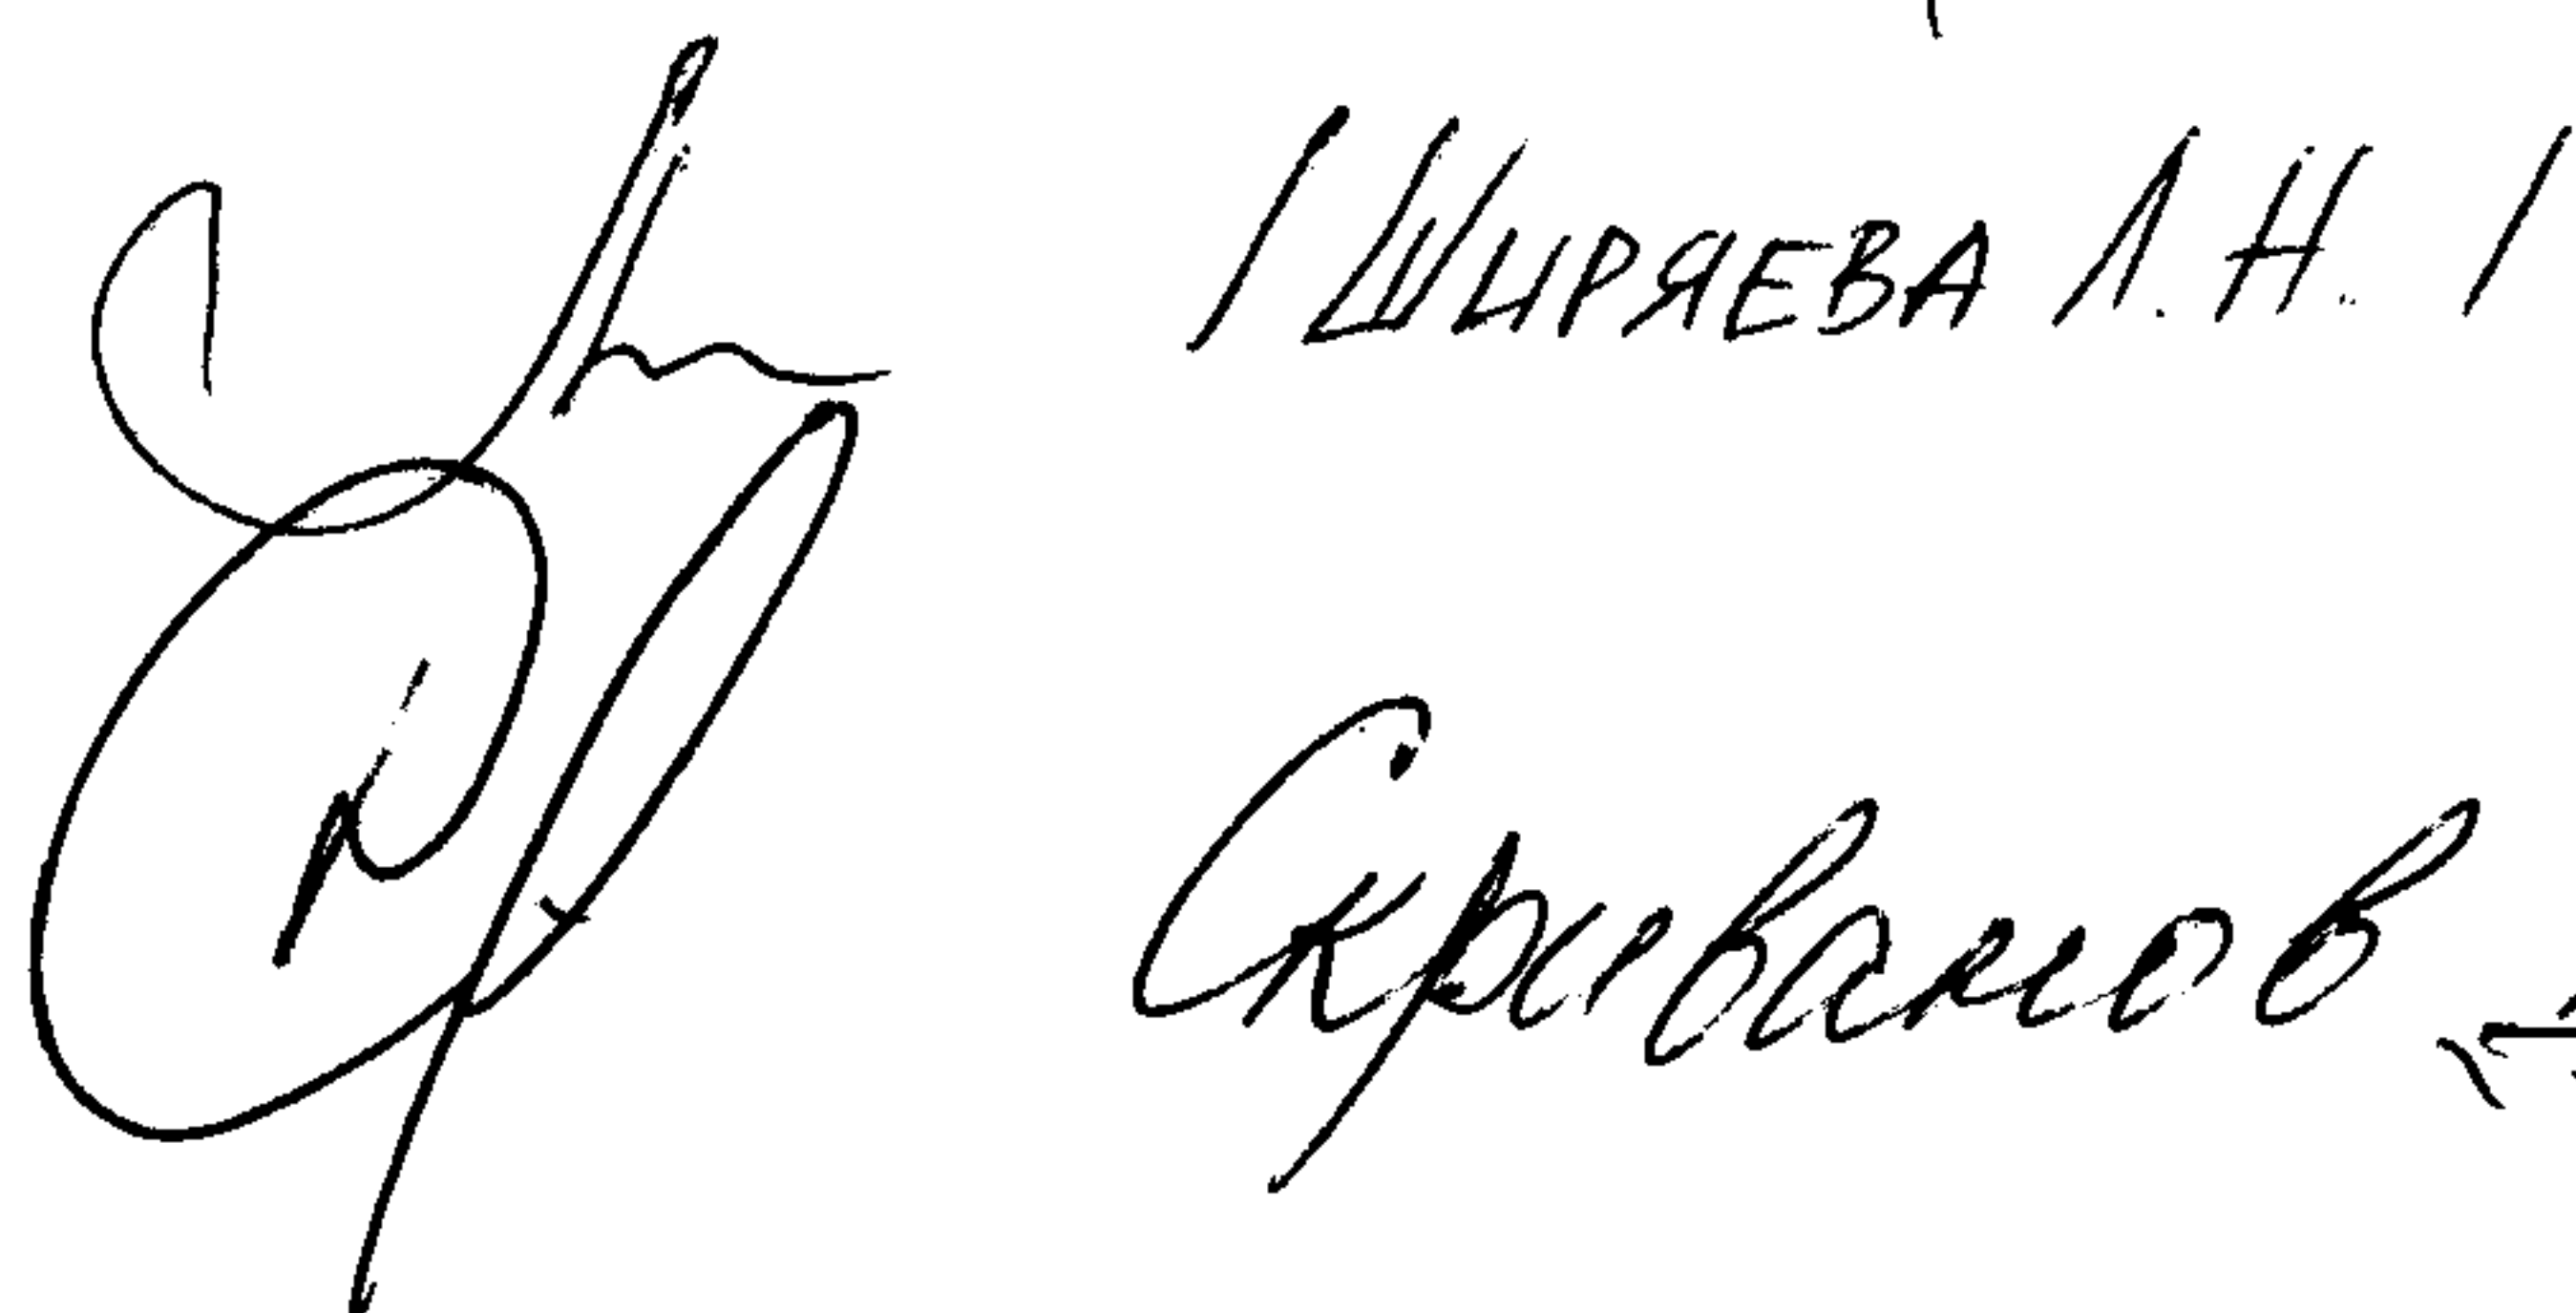 / ШИРЯЕВА Л.Н. /
Скриванов